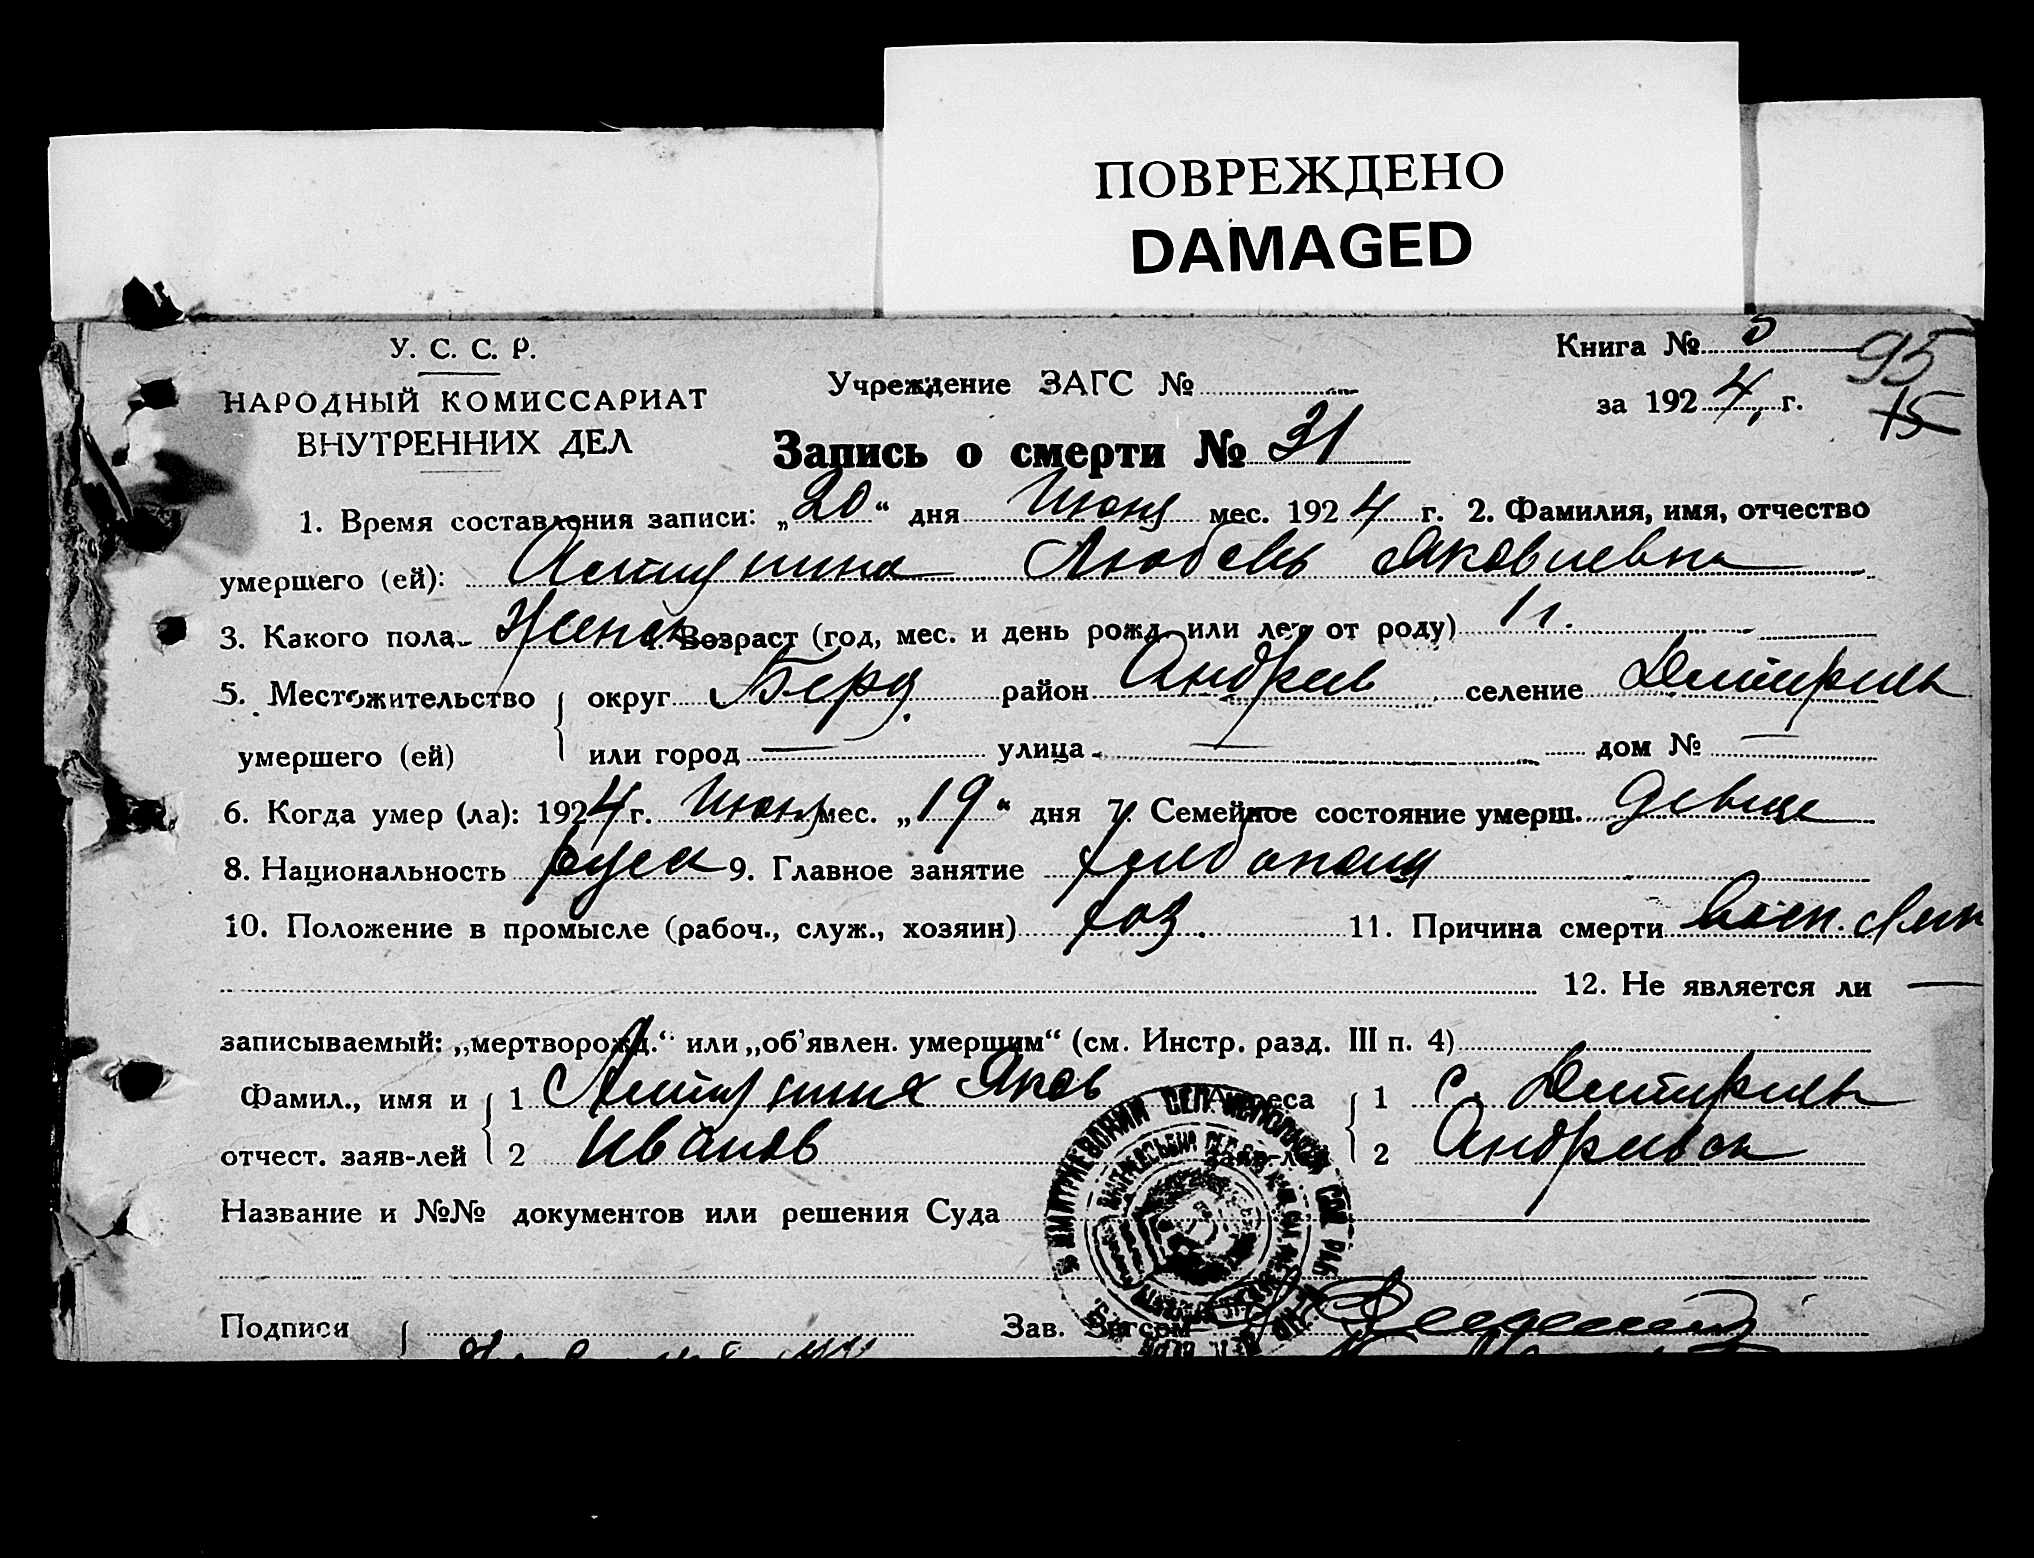 ПОВРЕЖДЕНО
DAMAGED
У. С. С. Р.
НАРОДНЫЙ КОМИССАРИАТ
ВНУТРЕННИХ ДЕЛ
Учреждение ЗАГС №
Книга №
за 1924 г.
95
15
Запись о смерти № 31
1. Время составления записи: „20“ дня Июня мес. 1924 г. 2. Фамилия, имя, отчество
умершего (ей): Любовь Яковлевна
3. Какого пола Женск 4. Возраст (год, мес. и день рожд. или лет от роду) 1 г.
5. Местожительство округ Берд. район Андреев селение
умершего (ей) или город — улица — дом № —
6. Когда умер (ла): 1924 г. Июня мес. „19“ дня 7. Семейное состояние умерш. девица
8. Национальность руск 9. Главное занятие хлебопаш
10. Положение в промысле (рабоч., служ., хозяин) хоз. 11. Причина смерти восп.
12. Не является ли —
записываемый: „мертворожд.“ или „об'явлен. умершим“ (см. Инстр. разд. III п. 4)
Фамил., имя и 1 Яков Адреса 1 с.
отчест. заяв-лей 2 Иванов заяв-лей 2
Название и №№ документов или решения Суда
Подписи Зав. Загсом